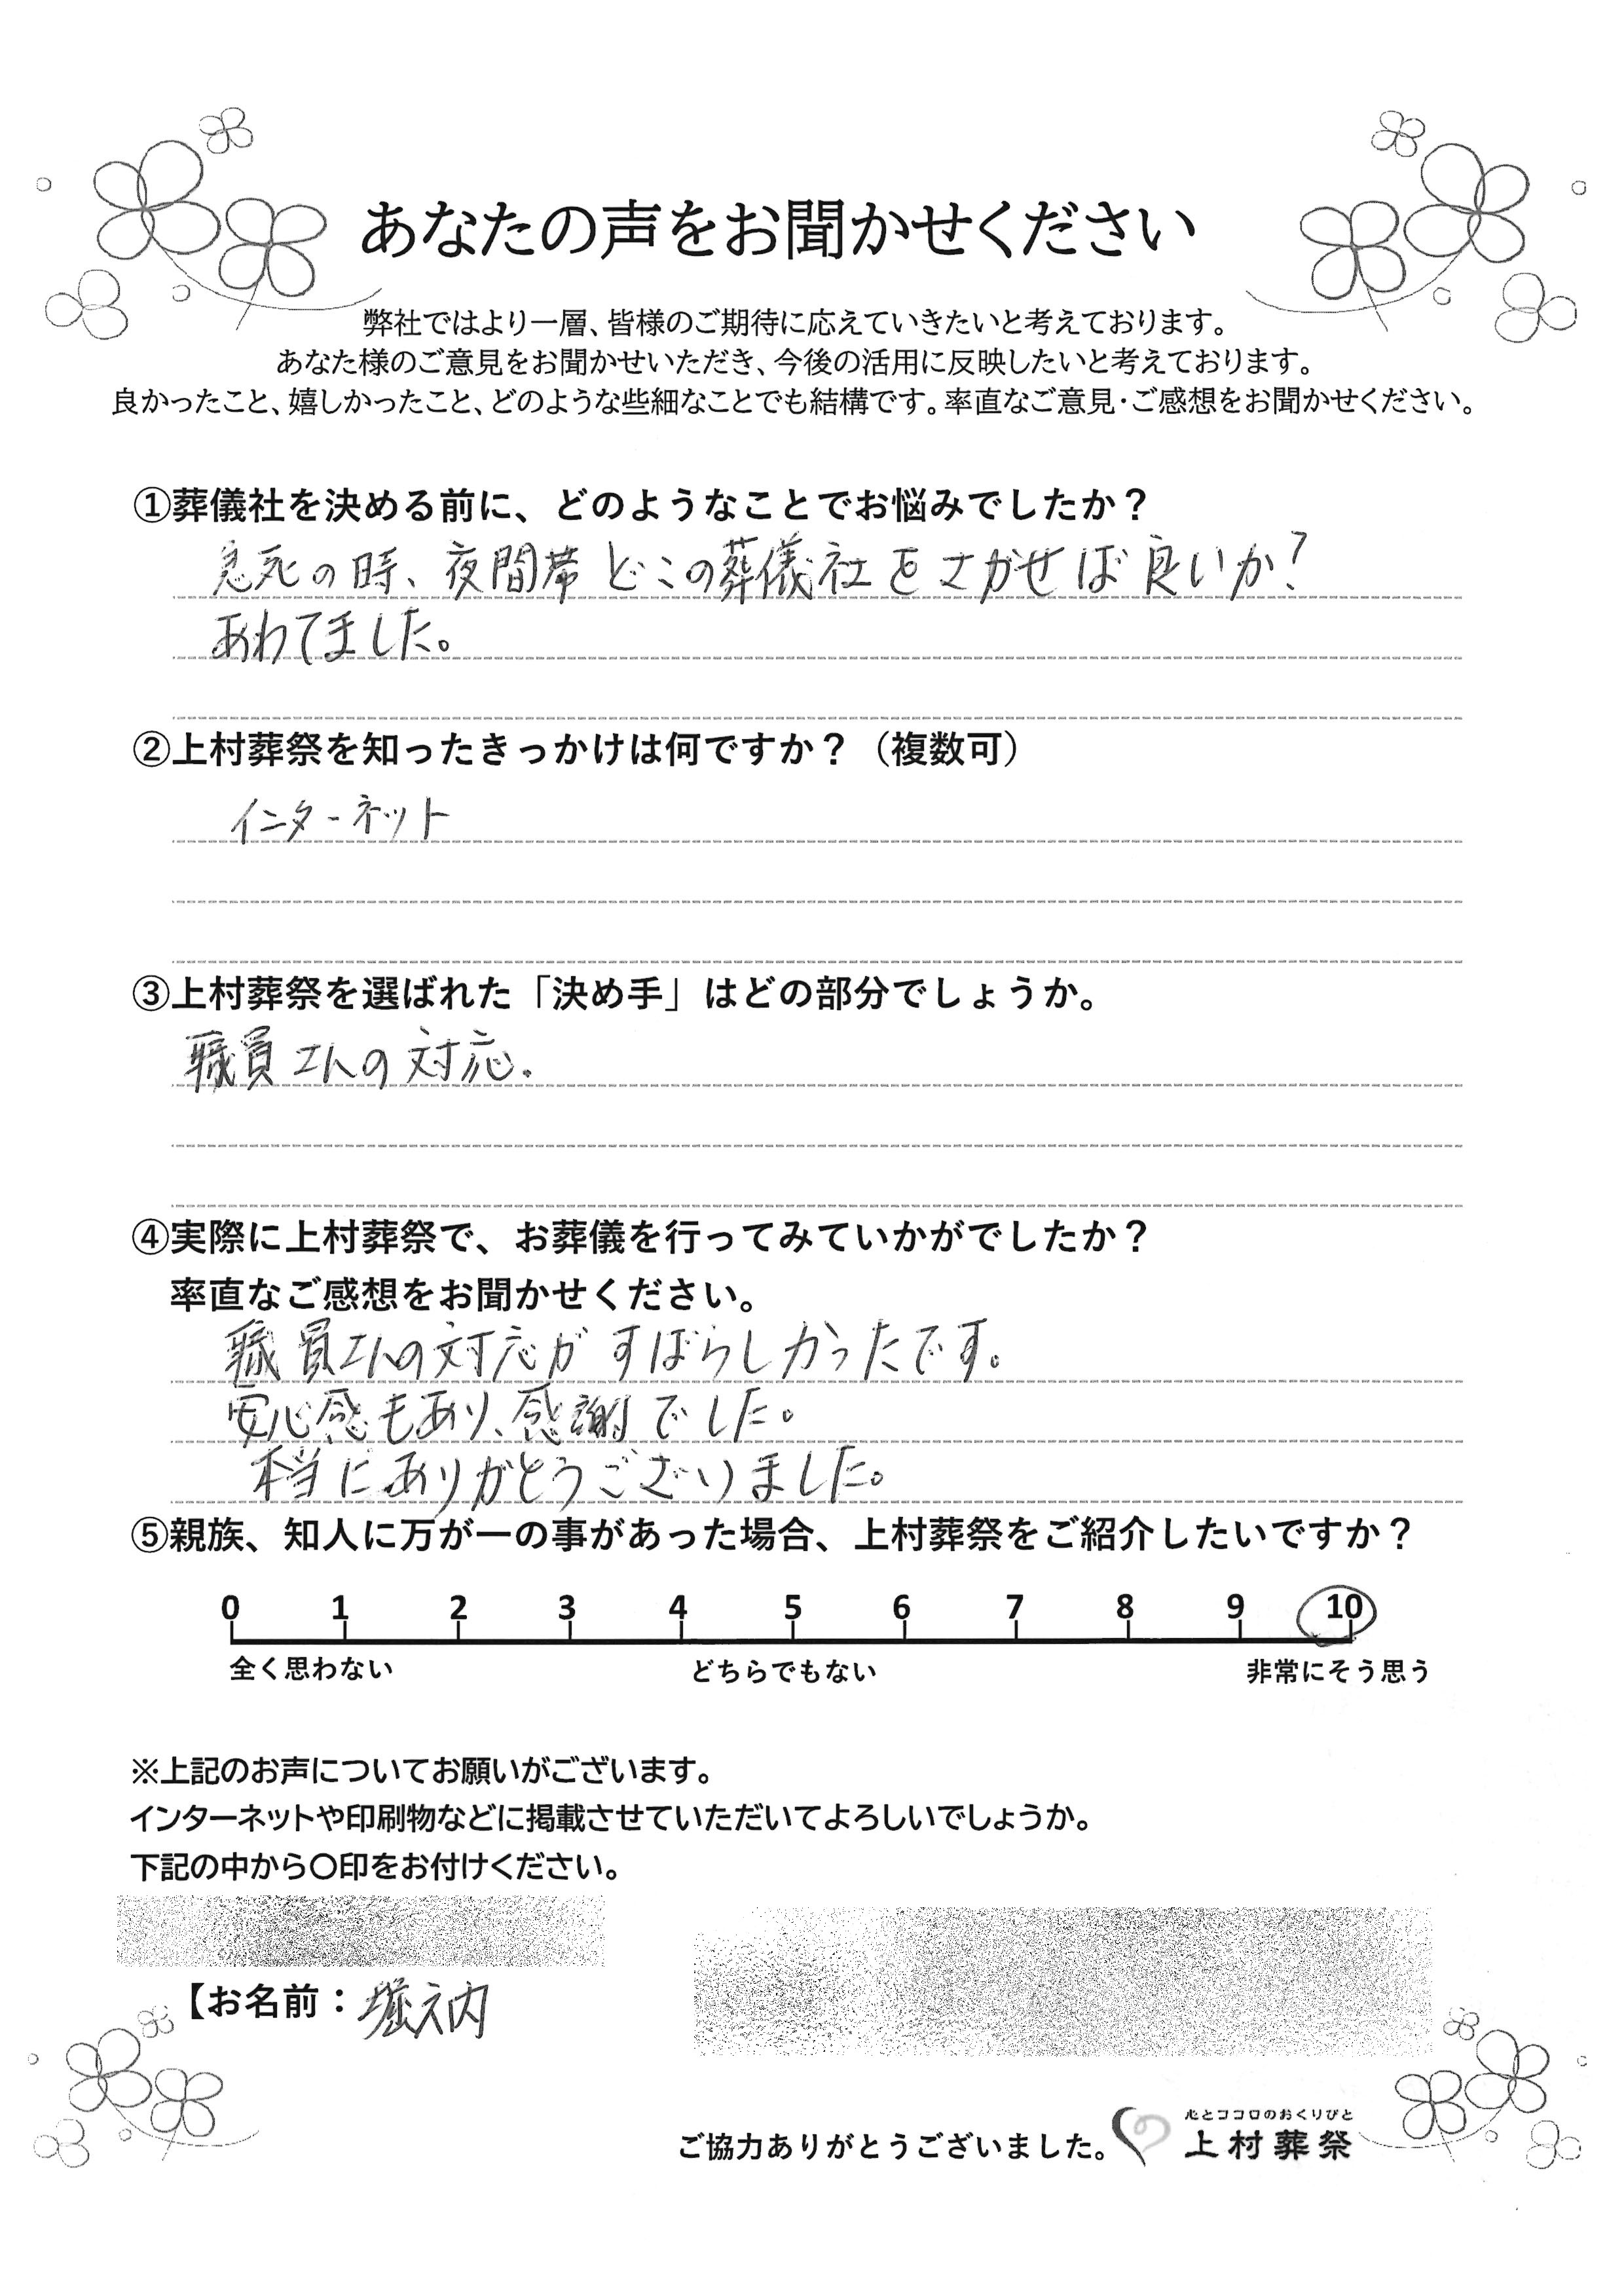 あなたの声をお聞かせください
弊社ではより一層、皆様のご期待に応えていきたいと考えております。
あなた様のご意見をお聞かせいただき、今後の活用に反映したいと考えております。
良かったこと、嬉しかったこと、どのような些細なことでも結構です。率直なご意見・ご感想をお聞かせください。
①葬儀社を決める前に、どのようなことでお悩みでしたか？
急死の時、夜間帯どこの葬儀社をさがせば良いか？
あわてました。
②上村葬祭を知ったきっかけは何ですか？（複数可）
インターネット
③上村葬祭を選ばれた「決め手」はどの部分でしょうか。
職員さんの対応.
④実際に上村葬祭で、お葬儀を行ってみていかがでしたか？
率直なご感想をお聞かせください。
職員さんの対応がすばらしかったです。
安心感もあり、感謝でした。
本当にありがとうございました。
⑤親族、知人に万が一の事があった場合、上村葬祭をご紹介したいですか？
0 1 2 3 4 5 6 7 8 9 10
全く思わない どちらでもない 非常にそう思う
※上記のお声についてお願いがございます。
インターネットや印刷物などに掲載させていただいてよろしいでしょうか。
下記の中から〇印をお付けください。
【お名前：堀之内
心とココロのおくりびと
ご協力ありがとうございました。 上村葬祭